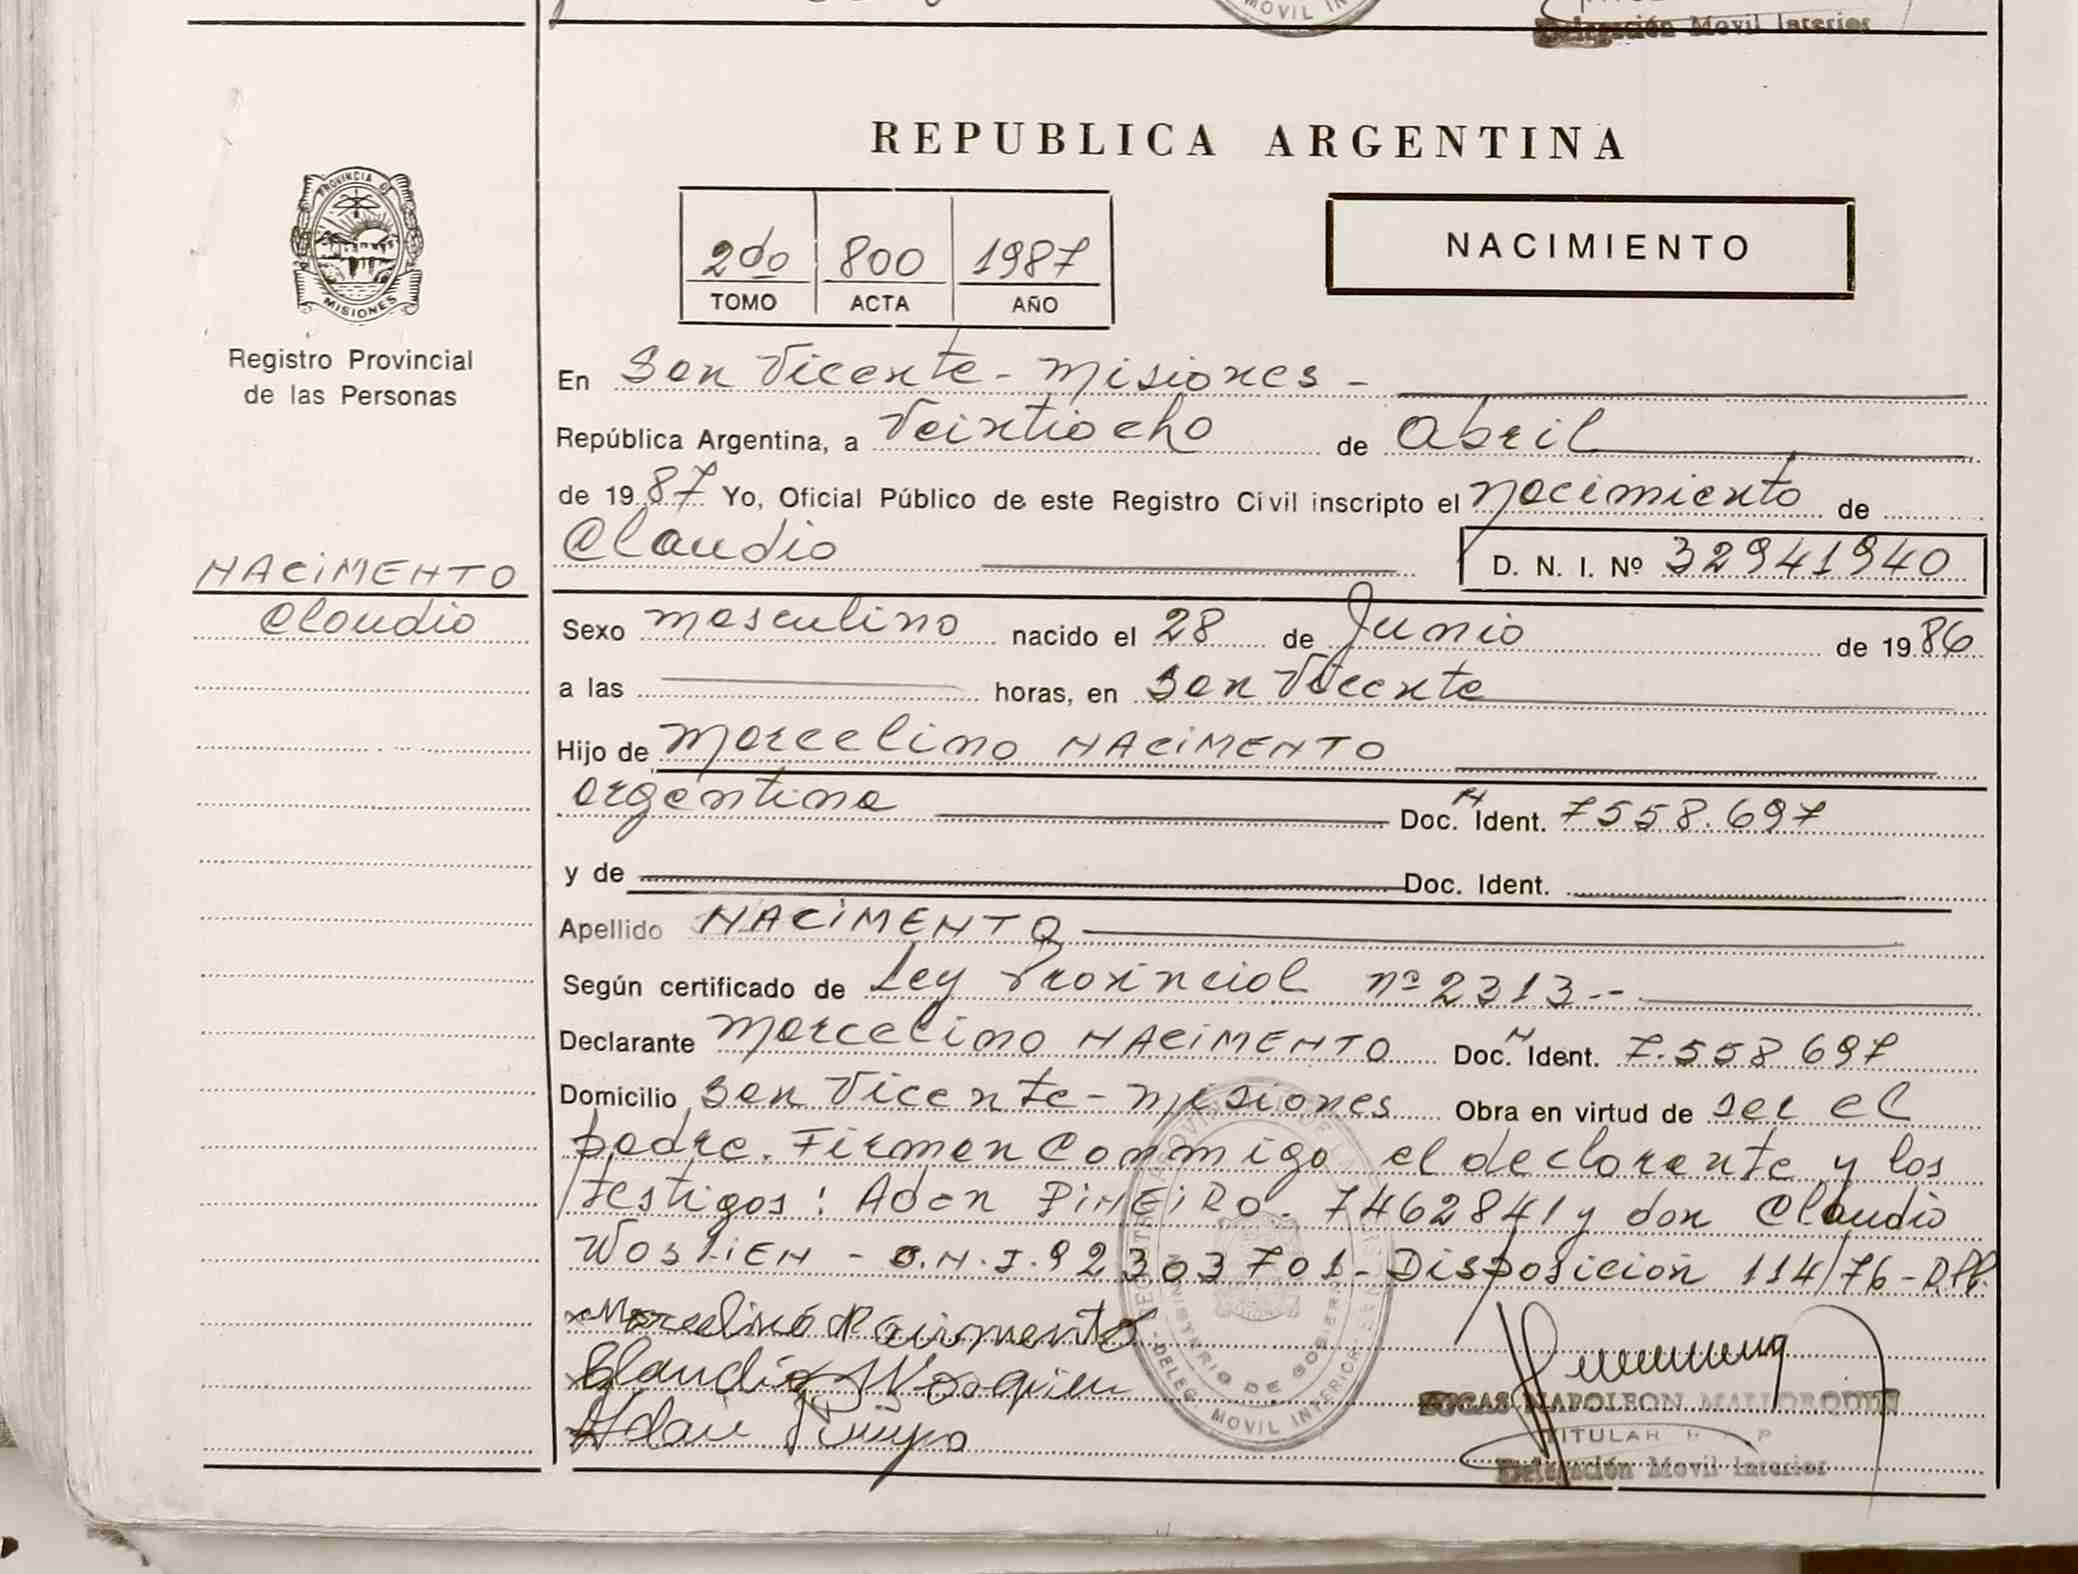 MOVIL IN
Delegación Movil Interior
REPUBLICA ARGENTINA
PROVINCIA D
MISIONES
Registro Provincial
de las Personas
2do 800 1987
TOMO ACTA AÑO
NACIMIENTO
En San Vicente - Misiones -
República Argentina, a Veintiocho de Abril
de 1987 Yo, Oficial Público de este Registro Civil inscripto el nacimiento de
Claudio D. N. I. Nº 32941940
NACIMENTO
Claudio
Sexo masculino nacido el 28 de Junio de 1986
a las horas, en San Vicente
Hijo de Marcelino NACIMENTO
argentina Doc. M Ident. 7558.697
y de Doc. Ident.
Apellido NACIMENTO
Según certificado de Ley Provincial nº 2313.--
Declarante Marcelino NACIMENTO Doc. M Ident. 7.558.697
Domicilio San Vicente - Misiones Obra en virtud de ser el
padre. Firman Conmigo el declarante y los
testigos: Adan PIÑEIRO. 7462841 y don Claudio
D.N.I. 92303701 - Disposición 114/76 -
Marcelino
Claudio
Adan
NAPOLEON MALLORQUIN
TITULAR
Delegación Movil Interior
MINISTERIO DE GOBIERNO
DELEG. MOVIL INTERIOR